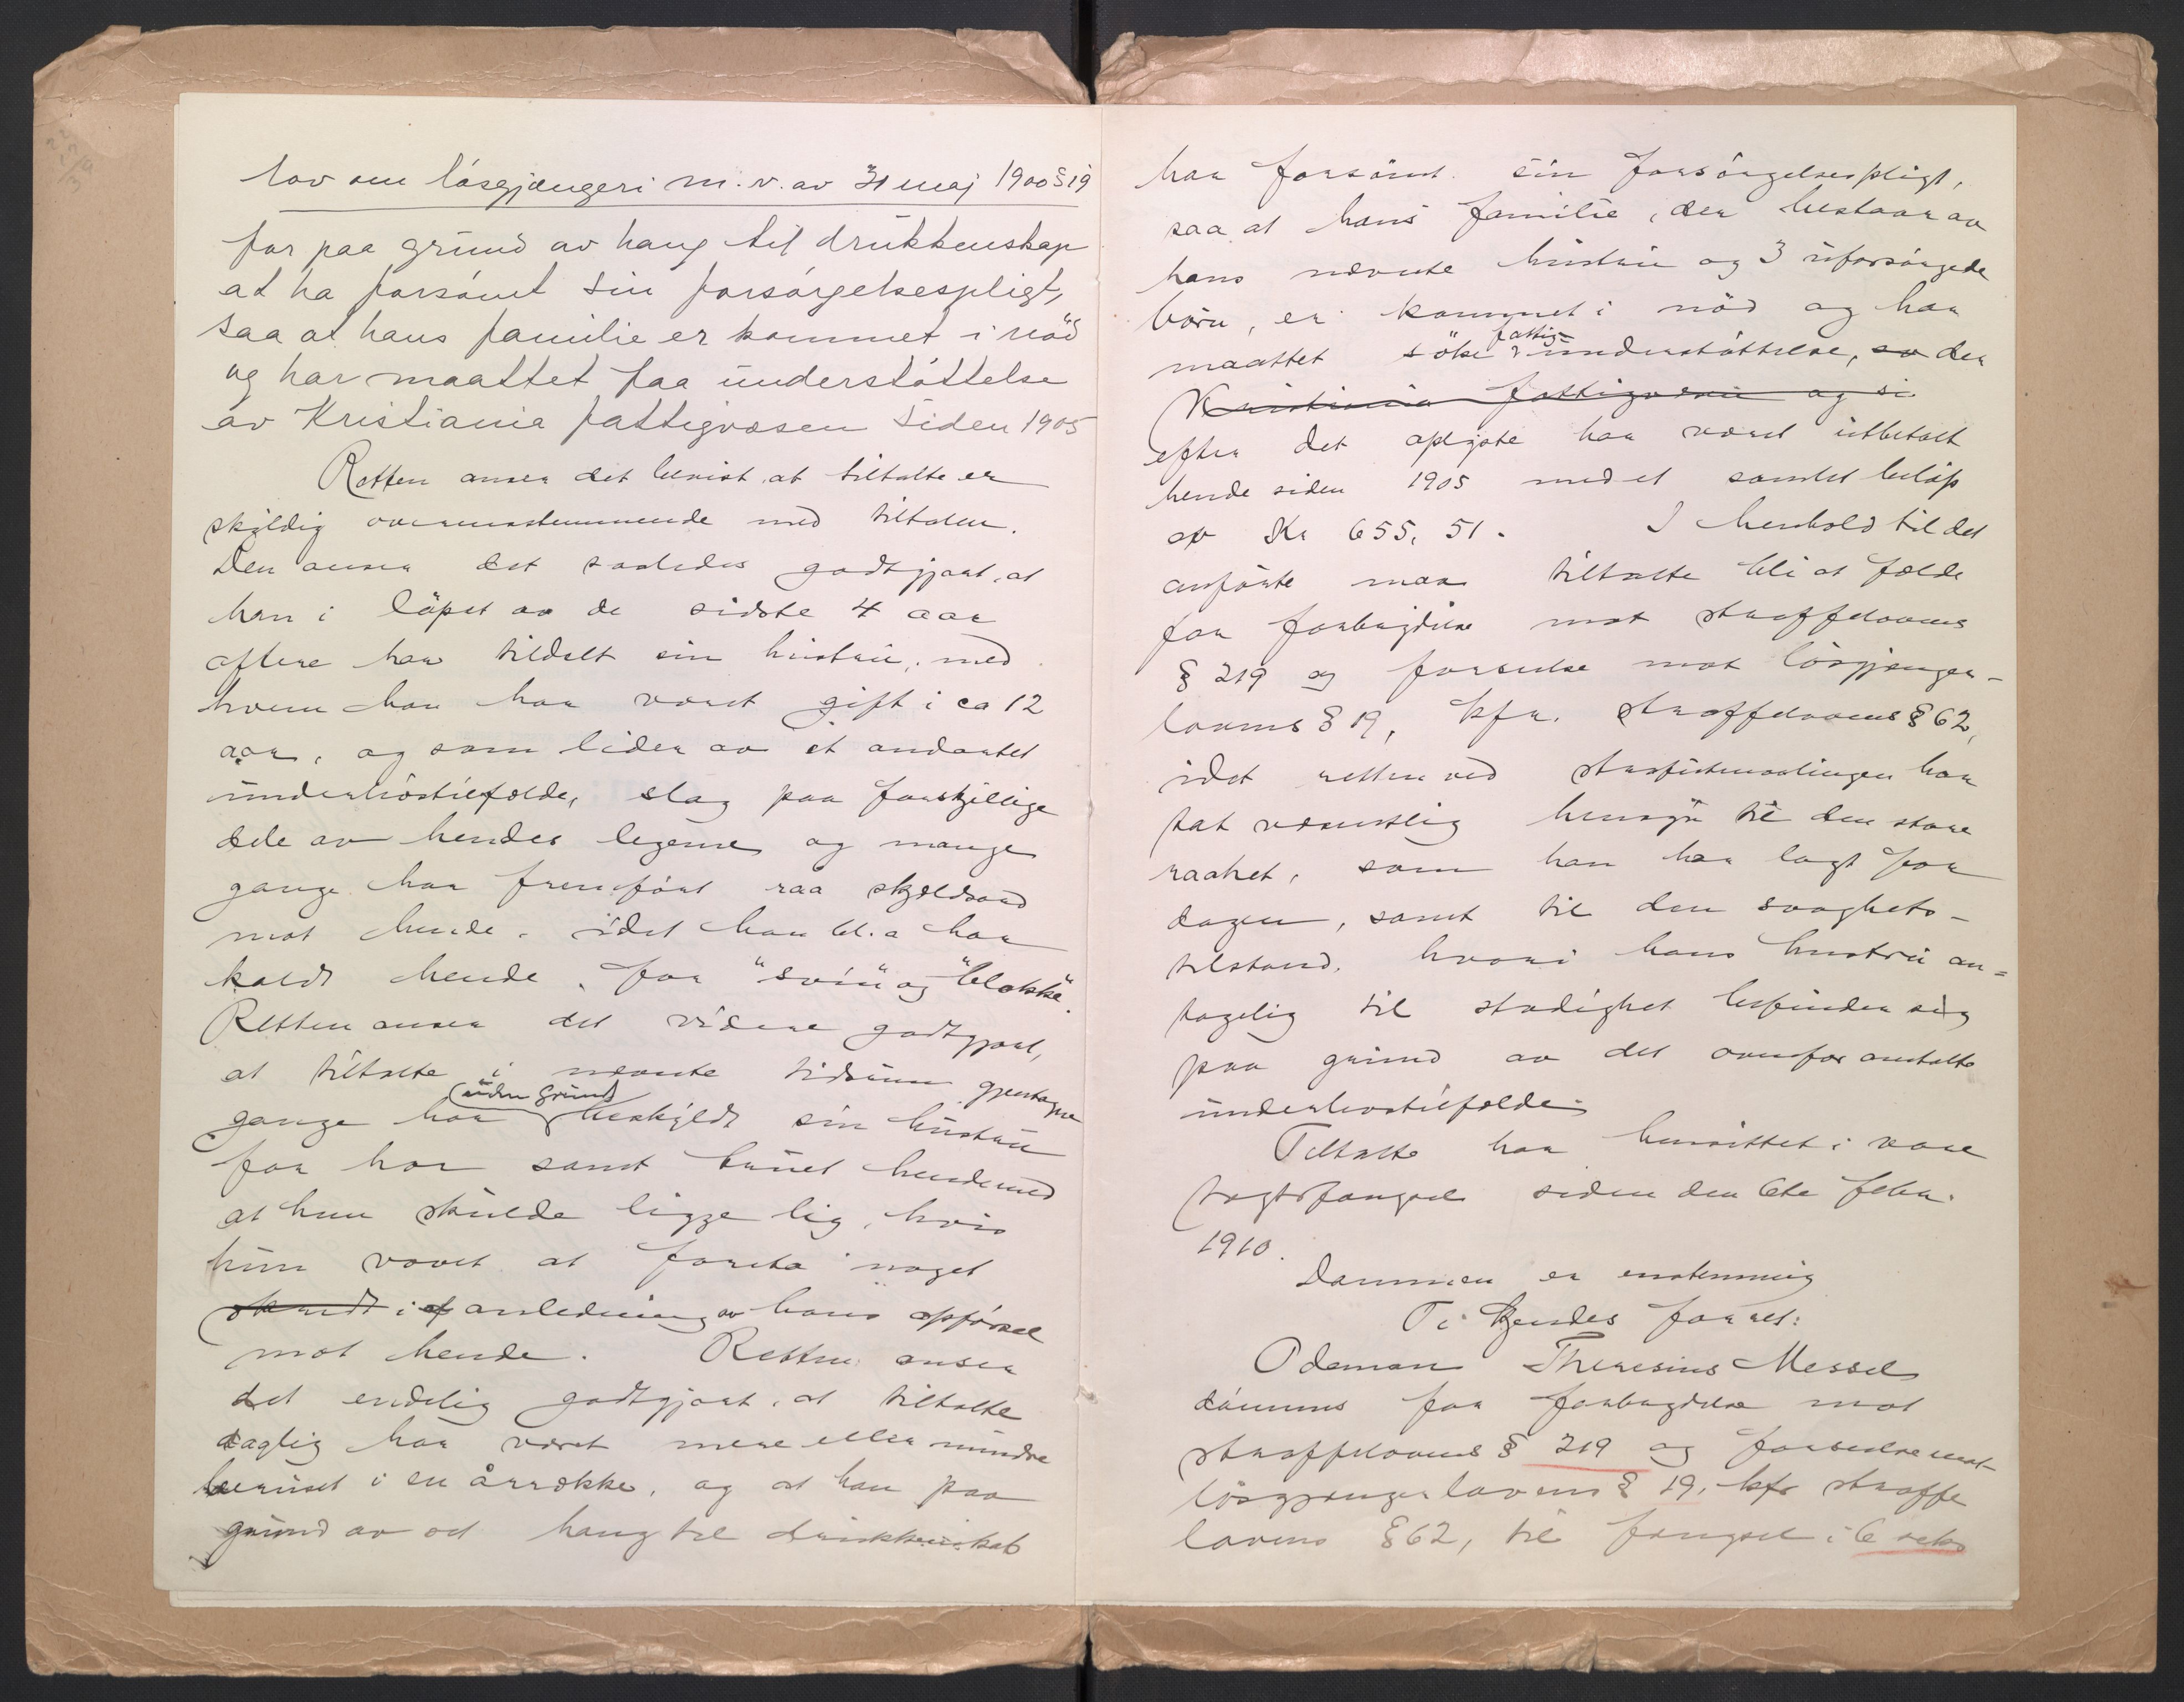 Lov om løsgjængeri m.v. av 31 maj 1900 § 19
for paa grund av hang til drukkenskap
at ha forsømt sin forsørgelsespligt,
saa at hans familie er kommet i nød
og har maattet faa understøttelse
av Kristiania fattigvæsen siden 1905
Retten anser det bevist, at tiltalte er
skyldig overensstemmende med tiltalen.
Den anser det saaledes godtgjort, at
han i løpet av de sidste 4 aar
oftere har tildelt sin hustru, med
hvem han har været gift i ca 12
aar, og som lider av et andartet
underlivstilfælde, slag paa forskjellige
dele av hendes legeme og mange
gange har fremført raa skjældsord
mot hende, idet han bl.a har
kaldt hende for "svin" og "blokke".
Retten anser det videre godtgjort,
at tiltalte i nævnte tidsrum gjentagne
gange har (uden grund) beskyldt sin hustru
for hor samt truet hende med
at hun skulde ligge lig, hvis
hun vovet at foreta noget
i anledning av hans opførsel
mot hende. Retten anser
det endelig godtgjort, at tiltalte
daglig har været mere eller mindre
beruset i en årrække, og at han paa
grund av et hang til drukkenskab
har forsømt sin forsørgelsespligt,
saa at hans familie, der bestaar av
hans nævnte hustru og 3 uforsørgede
børn, er kommet i nød og har
maattet søke fattig-understøttelse, der
Kristiania fattigvæsen og si
efter det oplyste har været utbetalt
hende siden 1905 med et samlet beløp
av Kr 655,51. I henhold til det
anførte maa tiltalte bli at fælde
for forbrydelse mot straffelovens
§ 219 og forseelse mot løsgjænger-
lovens § 19, kfr. straffelovens § 62,
idet retten ved straffutmaalingen har
tat væsentlig hensyn til den store
raahet, som han har lagt for
dagen, samt til den svaghets-
tilstand, hvori hans hustru an=
tagelig til stadighet befinder sig
paa grund av det ovenfor omtalte
underlivstilfælde.
Tiltalte har hensittet i vare
tægtsfængsel siden den 6te febr.
1910.
Dommen er enstemmig
Ti kjendes for ret:
Odeman Theresius Messel
dømmes for forbrydelse mot
straffelovens § 219 og forseelse mot
løsgjængerlovens § 19, kfr straffe
lovens § 62, til fængsel i 6 seks